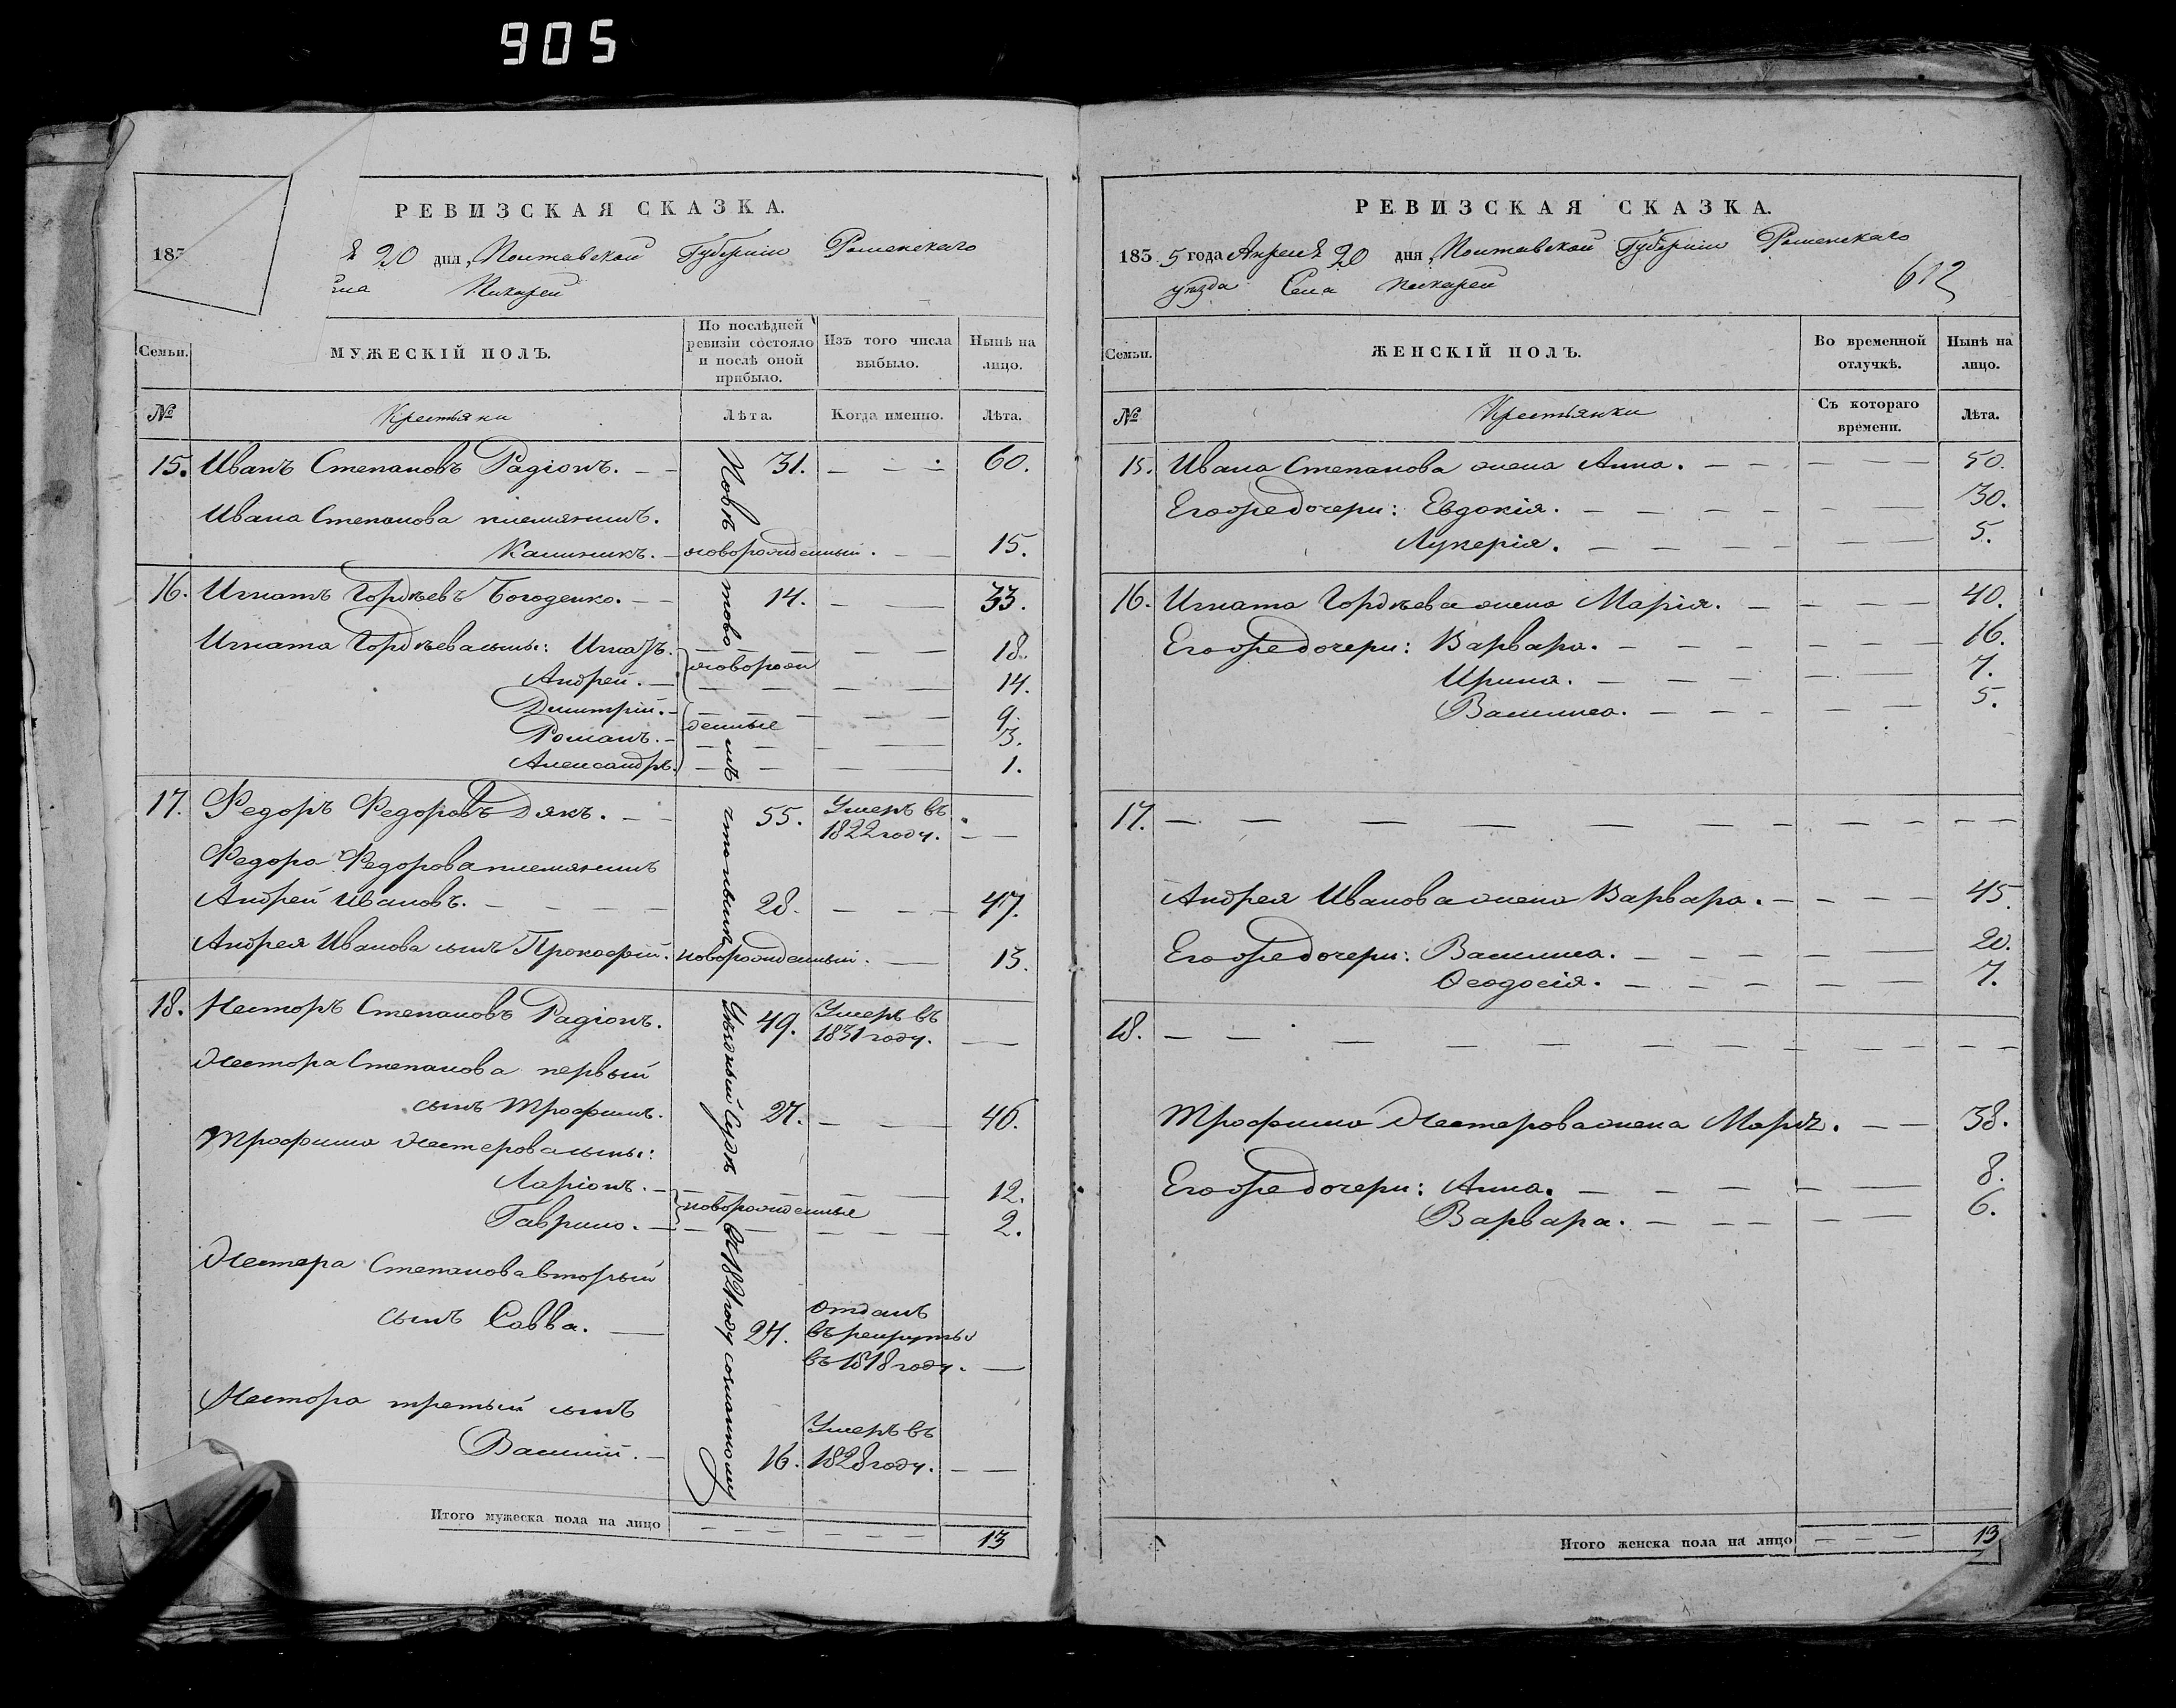 905
РЕВИЗСКАЯ СКАЗКА.
183
20 дня, Полтавской Губерніи Роменскаго
Пекарей
Семьи.
МУЖЕСКІЙ ПОЛЪ.
По послѣдней ревизіи состояло и послѣ оной прибыло.
Изъ того числа выбыло.
Нынѣ на лицо.
№
Крестьяни
Лѣта.
Когда именно.
Лѣта.
15. Иванъ Степановъ Радіонъ. 31. 60.
Ивана Степанова племянникъ.
Калиникъ. новорожденный. 15.
16. Игнатъ Гордѣевъ Богоденко. 14. 33.
Игната Гордѣева сыны: 18.
новорож
Андрей. 14.
Димитрій. 9.
денные
Романъ. 3.
Александръ. 1.
17. Федоръ Федоровъ Дякъ. 55. Умеръ въ
1822 году.
Федора Федорова племянникъ
Андрей Ивановъ. 28. 47.
Андрея Иванова сынъ Прокофій. новорожденный. 13.
18. Несторъ Степановъ Радіонъ. 49. Умеръ въ
1831 году.
Нестора Степанова первый
сынъ Трофимъ. 27. 46.
Трофима Нестерова сыны:
Ларіонъ. 12.
новорожденные
Гаврило. 2.
Нестера Степанова вторый
сынъ Савва. 24. отданъ
въ рекруты
въ 1818 году.
Нестора третьій сынъ
Василій. 16. Умеръ въ
1828 году.
Повѣтовомъ
Уѣздный Судъ
Итого мужеска пола на лицо
13
РЕВИЗСКАЯ СКАЗКА.
1835 года Апреля 20 дня, Полтавской Губерніи Роменскаго
уѣзда Села Пекарей
612
Семьи.
ЖЕНСКІЙ ПОЛЪ.
Во временной отлучкѣ.
Нынѣ на лицо.
№
Крестьянки
Съ котораго времени.
Лѣта.
15. Ивана Степанова жена Анна. 50.
Его же дочери: Евдокія. 30.
Лукерія. 5.
16. Игната Гордѣева жена Марія. 40.
Его же дочери: Варвара. 16.
Ирина. 7.
Василиса. 5.
17.
Андрея Иванова жена Варвара. 45.
Его же дочери: Василиса. 20.
Ѳеодосія. 7.
18.
Трофима Нестерова жена Марія. 38.
Его же дочери: Анна. 8.
Варвара. 6.
Итого женска пола на лицо
13